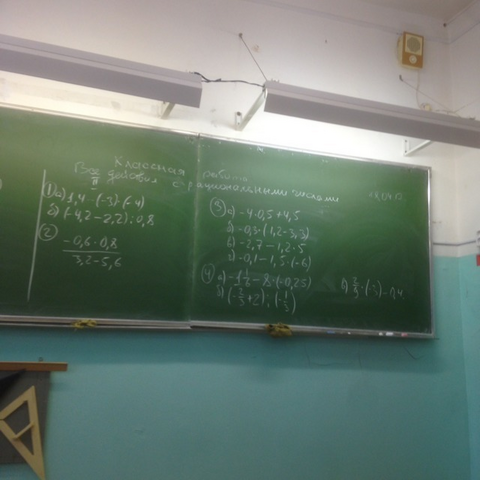 Классная работа
Все действия с рациональными числами
II
① а) 1,4·(-3)·(-4)
б) (-4,2-2,2):0,8
②
-0,6·0,8
3,2-5,6
③ а) -4·0,5+4,5
б) -0,3·(1,2-3,3)
в) -2,7-1,2·5
г) -0,1-1,5·(-6)
④ а) -1 1/6 - 8·(-0,25)
б) (-2/3+2):(-1/3)